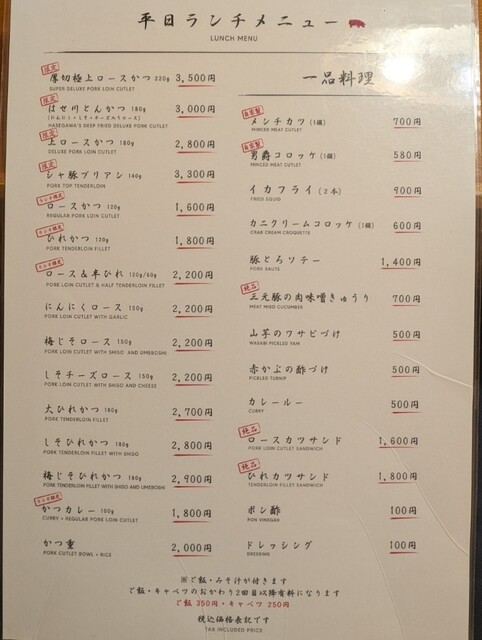 平日ランチメニュー
LUNCH MENU
限定
厚切極上ロースかつ 220g 3,500円
SUPER DELUXE PORK LOIN CUTLET
限定
はせ川とんかつ 180g 3,000円
(にんにく・しそ・チーズ入りロース)
HASEGAWA'S DEEP FRIED DELUXE PORK CUTLET
限定
上ロースかつ 180g 2,800円
DELUXE PORK LOIN CUTLET
限定
シャ豚ブリアン 140g 3,300円
PORK TOP TENDERLOIN
ランチ限定
ロースかつ 120g 1,600円
REGULAR PORK LOIN CUTLET
ランチ限定
ひれかつ 120g 1,800円
PORK TENDERLOIN FILLET
ランチ限定
ロース&半ひれ 120g/60g 2,200円
PORK LOIN CUTLET & HALF TENDERLOIN FILLET
にんにくロース 150g 2,200円
PORK LOIN CUTLET WITH GARLIC
梅じそロース 150g 2,200円
PORK LOIN CUTLET WITH SHISO AND UMEBOSHI
しそチーズロース 150g 2,200円
PORK LOIN CUTLET WITH SHISO AND CHEESE
大ひれかつ 180g 2,700円
PORK TENDERLOIN FILLET
しそひれかつ 180g 2,800円
PORK TENDERLOIN FILLET WITH SHISO
梅じそひれかつ 180g 2,900円
PORK TENDERLOIN FILLET WITH SHISO AND UMEBOSHI
ランチ限定
かつカレー 100g 1,800円
CURRY + REGULAR PORK LOIN CUTLET
かつ重 2,000円
PORK CUTLET BOWL + RICE
一品料理
自家製
メンチカツ (1個) 700円
MINCED MEAT CUTLET
自家製
男爵コロッケ (1個) 580円
MINCED MEAT CUTLET
イカフライ (2本) 900円
FRIED SQUID
カニクリームコロッケ (1個) 600円
CRAB CREAM CROQUETTE
豚とろソテー 1,400円
PORK SAUTE
絶品
三元豚の肉味噌きゅうり 700円
MEAT MISO CUCUMBER
山芋のワサビづけ 500円
WASABI PICKLED YAM
赤かぶの酢づけ 500円
PICKLED TURNIP
カレールー 500円
CURRY
絶品
ロースカツサンド 1,600円
PORK LOIN CUTLET SANDWICH
絶品
ひれカツサンド 1,800円
TENDERLOIN FILLET SANDWICH
ポン酢 100円
PON VINEGAR
ドレッシング 100円
DRESSING
※ご飯・みそ汁が付きます
ご飯・キャベツのおかわり2回目以降有料になります
ご飯 350円・キャベツ 250円
税込価格表記です
TAX INCLUDED PRICE